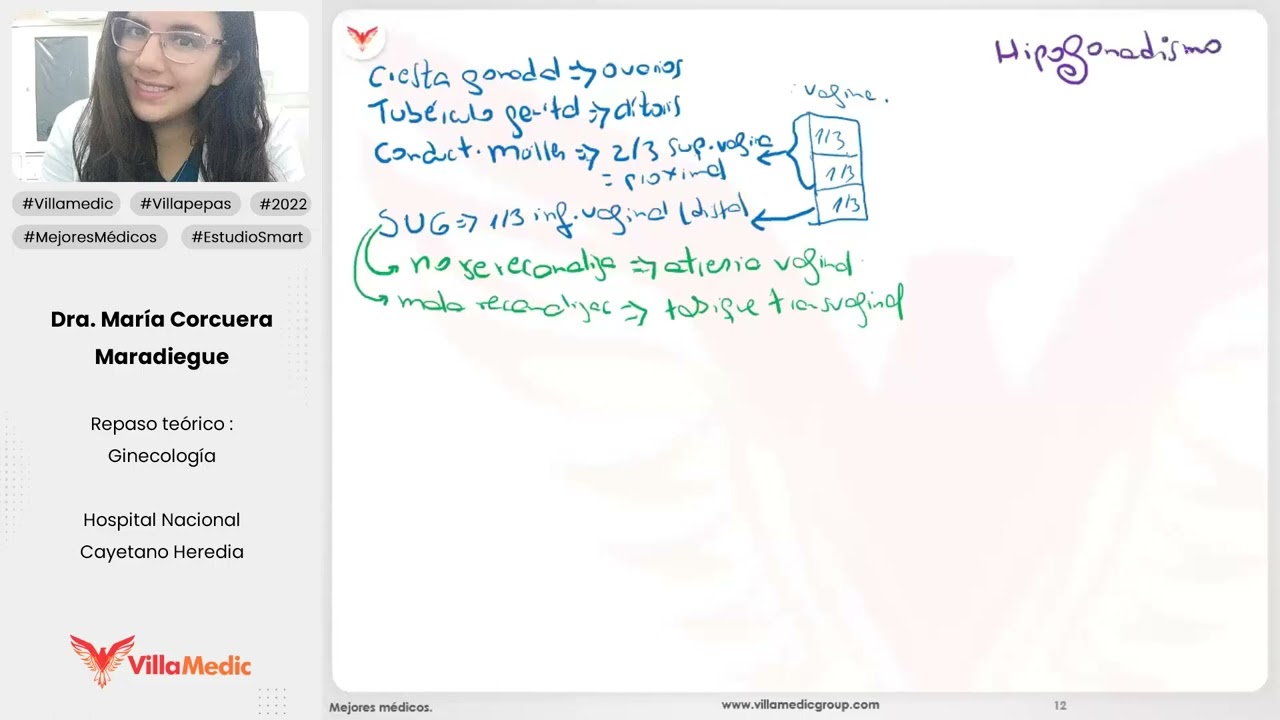 #Villamedic #Villapepas #2022
#MejoresMédicos #EstudioSmart
Dra. María Corcuera
Maradiegue
Repaso teórico :
Ginecología
Hospital Nacional
Cayetano Heredia
VillaMedic
Hipogonadismo
Cresta gonadal => ovarios
Tubérculo genital => clítoris
Conduct. müller => 2/3 sup. vagina
= proximal
SUG => 1/3 inf. vaginal (distal
no se recanaliza => atresia vaginal
mala recanalizac => tabique transvaginal
vagina.
1/3
1/3
1/3
Mejores médicos.
www.villamedicgroup.com
12